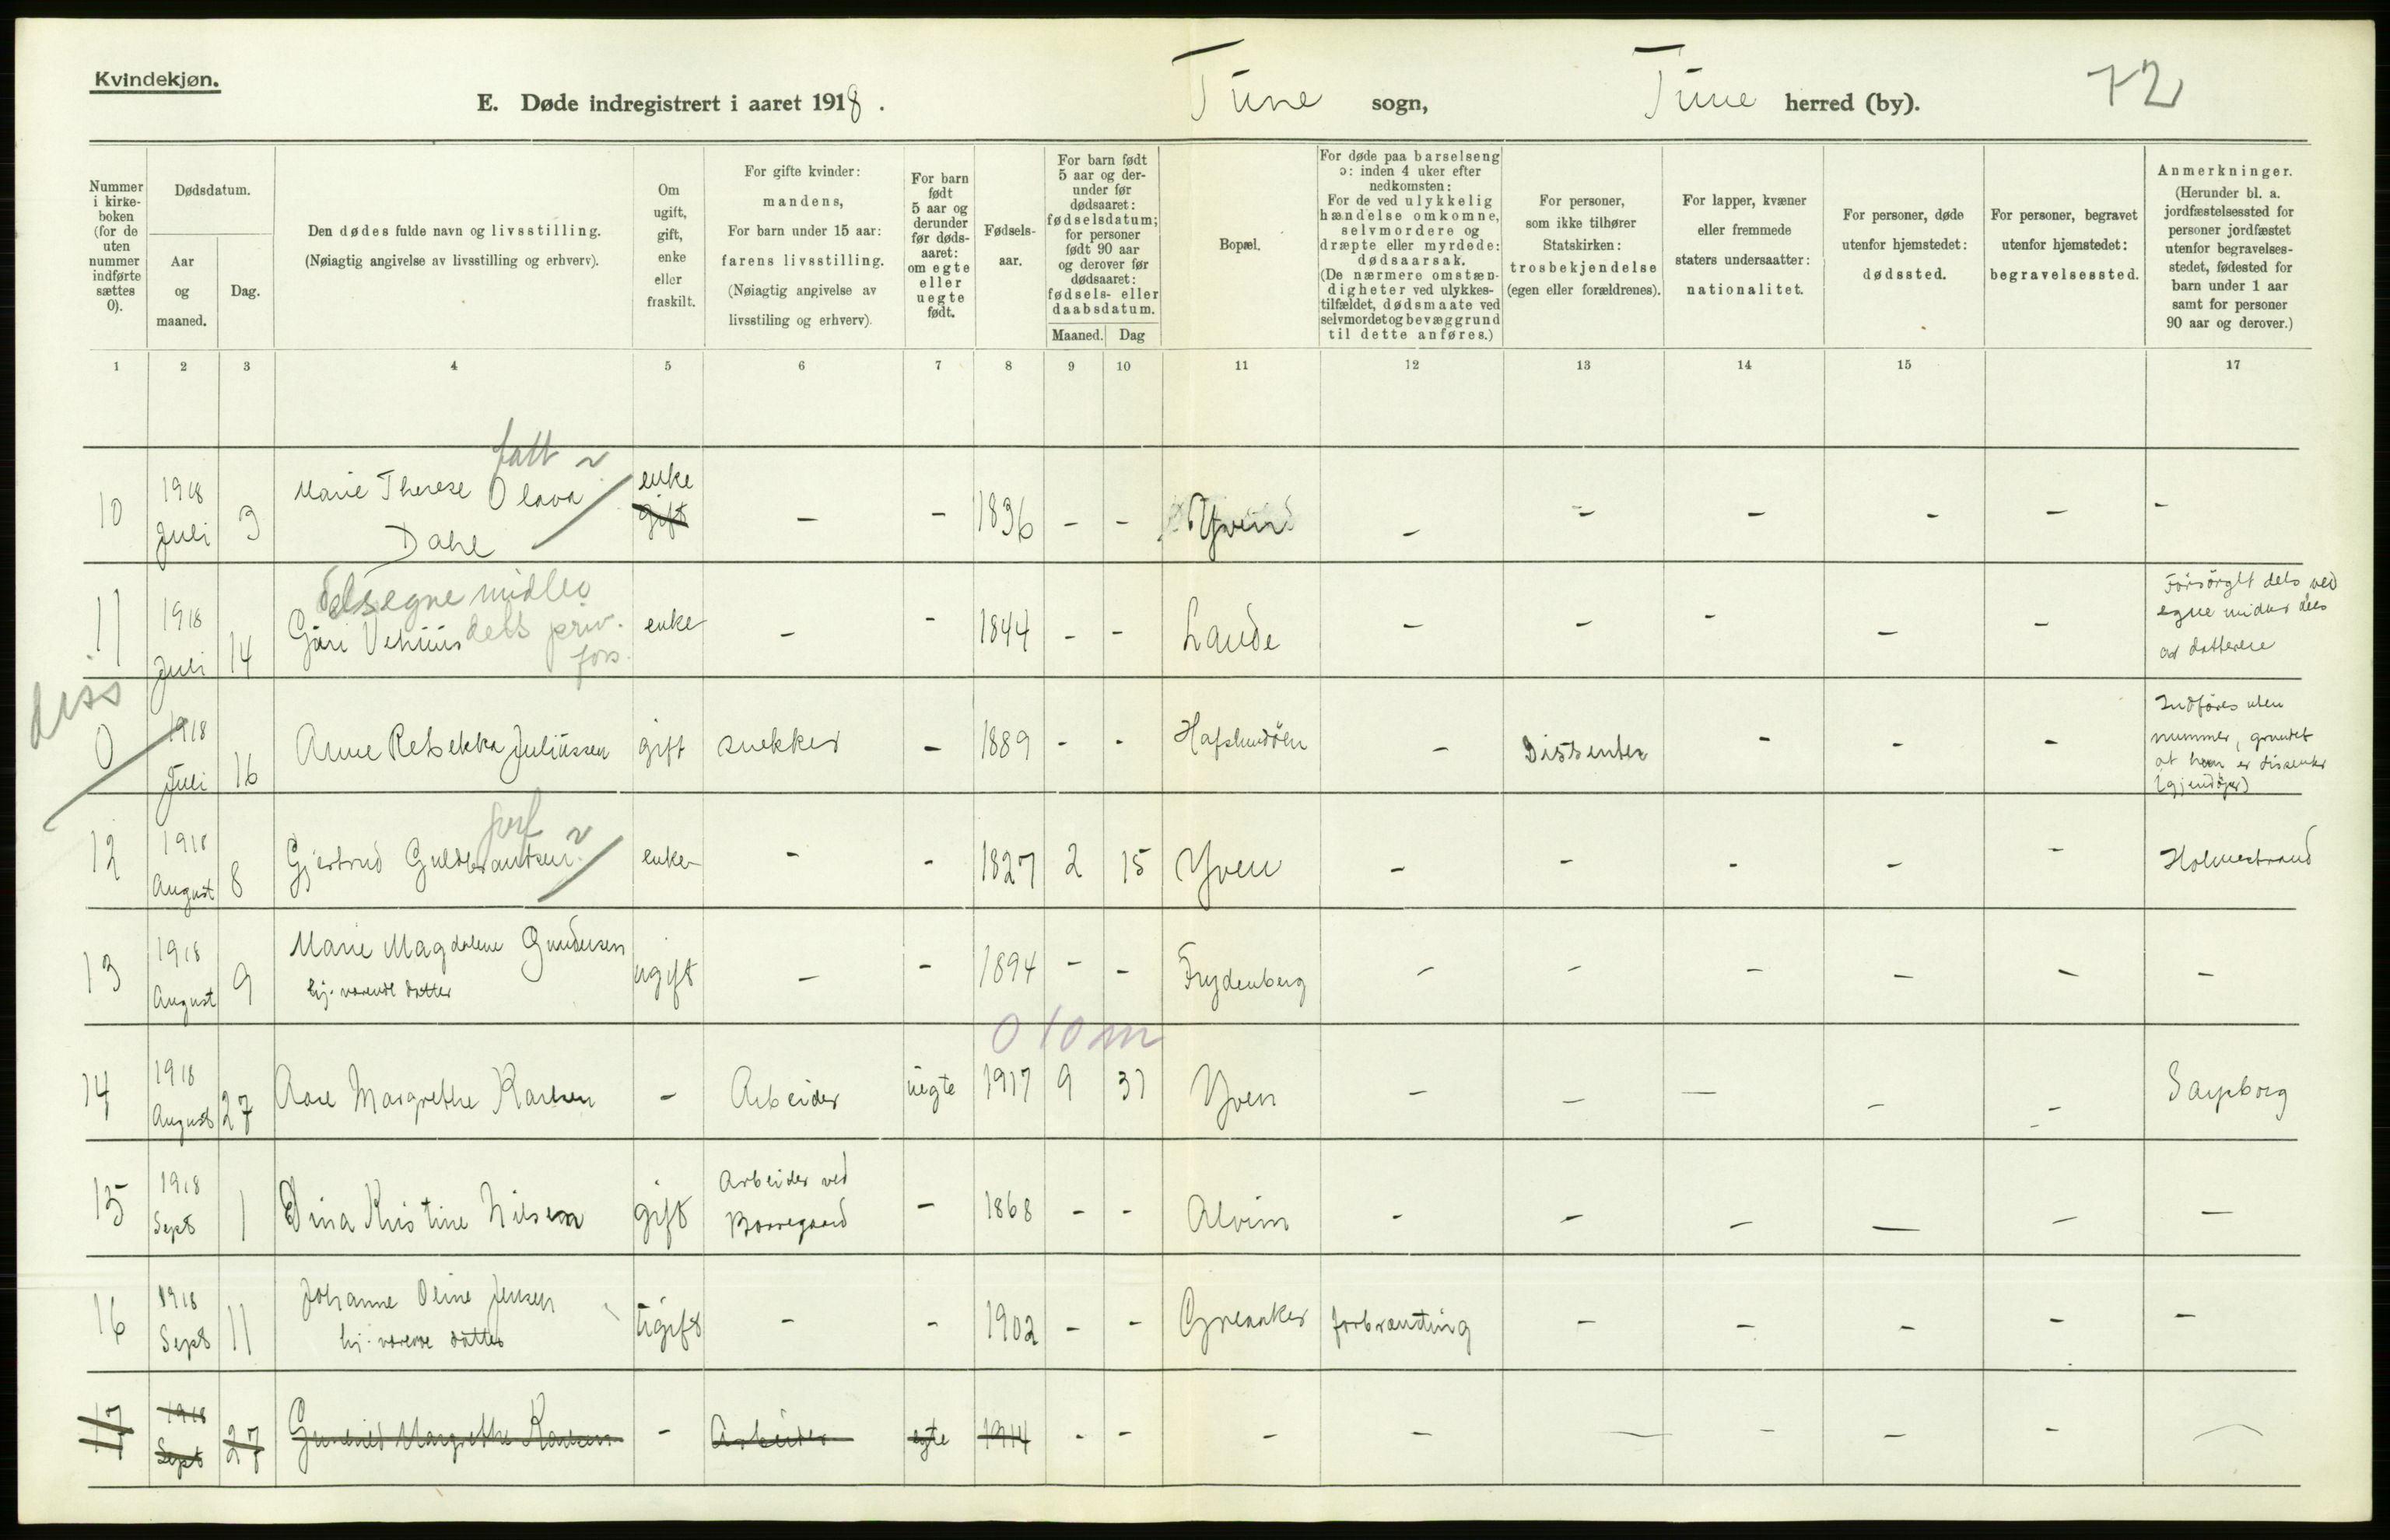 Kvindekjøn.
E. Døde indregistrert i aaret 1918. Tune sogn, Tune herred (by). 72
Nummer i kirkeboken (for de uten nummer indførte sættes 0).
Dødsdatum.
Aar og maaned.
Dag.
Den dødes fulde navn og livsstilling.
(Nøiagtig angivelse av livsstilling og erhverv).
Om ugift, gift, enke eller fraskilt.
For gifte kvinder: mandens,
For barn under 15 aar: farens livsstilling.
(Nøiagtig angivelse av livsstiling og erhverv).
For barn født 5 aar og derunder før dødsaaret: om egte eller uegte født.
Fødselsaar.
For barn født 5 aar og derunder før dødsaaret: fødselsdatum; for personer født 90 aar og derover før dødsaaret: fødsels- eller daabsdatum.
Maaned. Dag
Bopæl.
For døde paa barselseng ɔ: inden 4 uker efter nedkomsten:
For de ved ulykkelig hændelse omkomne, selvmordere og dræpte eller myrdede: dødsaarsak.
(De nærmere omstændigheter ved ulykkestilfældet, dødsmaate ved selvmordet og bevæggrund til dette anføres.)
For personer, som ikke tilhører Statskirken: trosbekjendelse (egen eller forældrenes).
For lapper, kvæner eller fremmede staters undersaatter: nationalitet.
For personer, døde utenfor hjemstedet: dødssted.
For personer, begravet utenfor hjemstedet: begravelsessted.
Anmerkninger.
(Herunder bl. a. jordfæstelsessted for personer jordfæstet utenfor begravelsesstedet, fødested for barn under 1 aar samt for personer 90 aar og derover.)
1 2 3 4 5 6 7 8 9 10 11 12 13 14 15 17
fatt
10 1918 Juli 3 Marie Therese Olava Dahl enke gift - - 1836 - - Yven - - - - - -
dels egne midler dels priv. fors.
11 1918 Juli 14 Guri Vehuus enke - - 1844 - - Lande - - - - - Forsørget dels ved egne midler dels av døtrene
diss
0 1918 Juli 16 Anne Rebekka Juliussen gift snekker - 1889 - - Hafslundöen - Dissenter - - - Indføres uten nummer, grundet at hun er dissenter (gjendöper)
forf
12 1918 August 8 Gjertrud Guldbrantsen enke - - 1827 2 15 Yven - - - - - Holmestrand
13 1918 August 9 Marie Magdalene Gundersen hj. værende datter ugift - - 1894 - - Frydenberg - - - - - -
0 10 m
14 1918 August 27 Aase Margrethe Karlsen - Arbeider uegte 1917 9 31 Yven - - - - - Sarpborg
15 1918 Sept 1 Dina Kristine Nilsen gift Arbeider ved Borregaard - 1868 - - Alvim - - - - - -
16 1918 Sept 11 Johanne Oline Jensen hj. værende datter ugift - - 1902 - - Greaaker forbrænding - - - - -
17 1918 Sept 27 Margrethe Karlsen - Arbeider egte 1914 - - - - - - - -